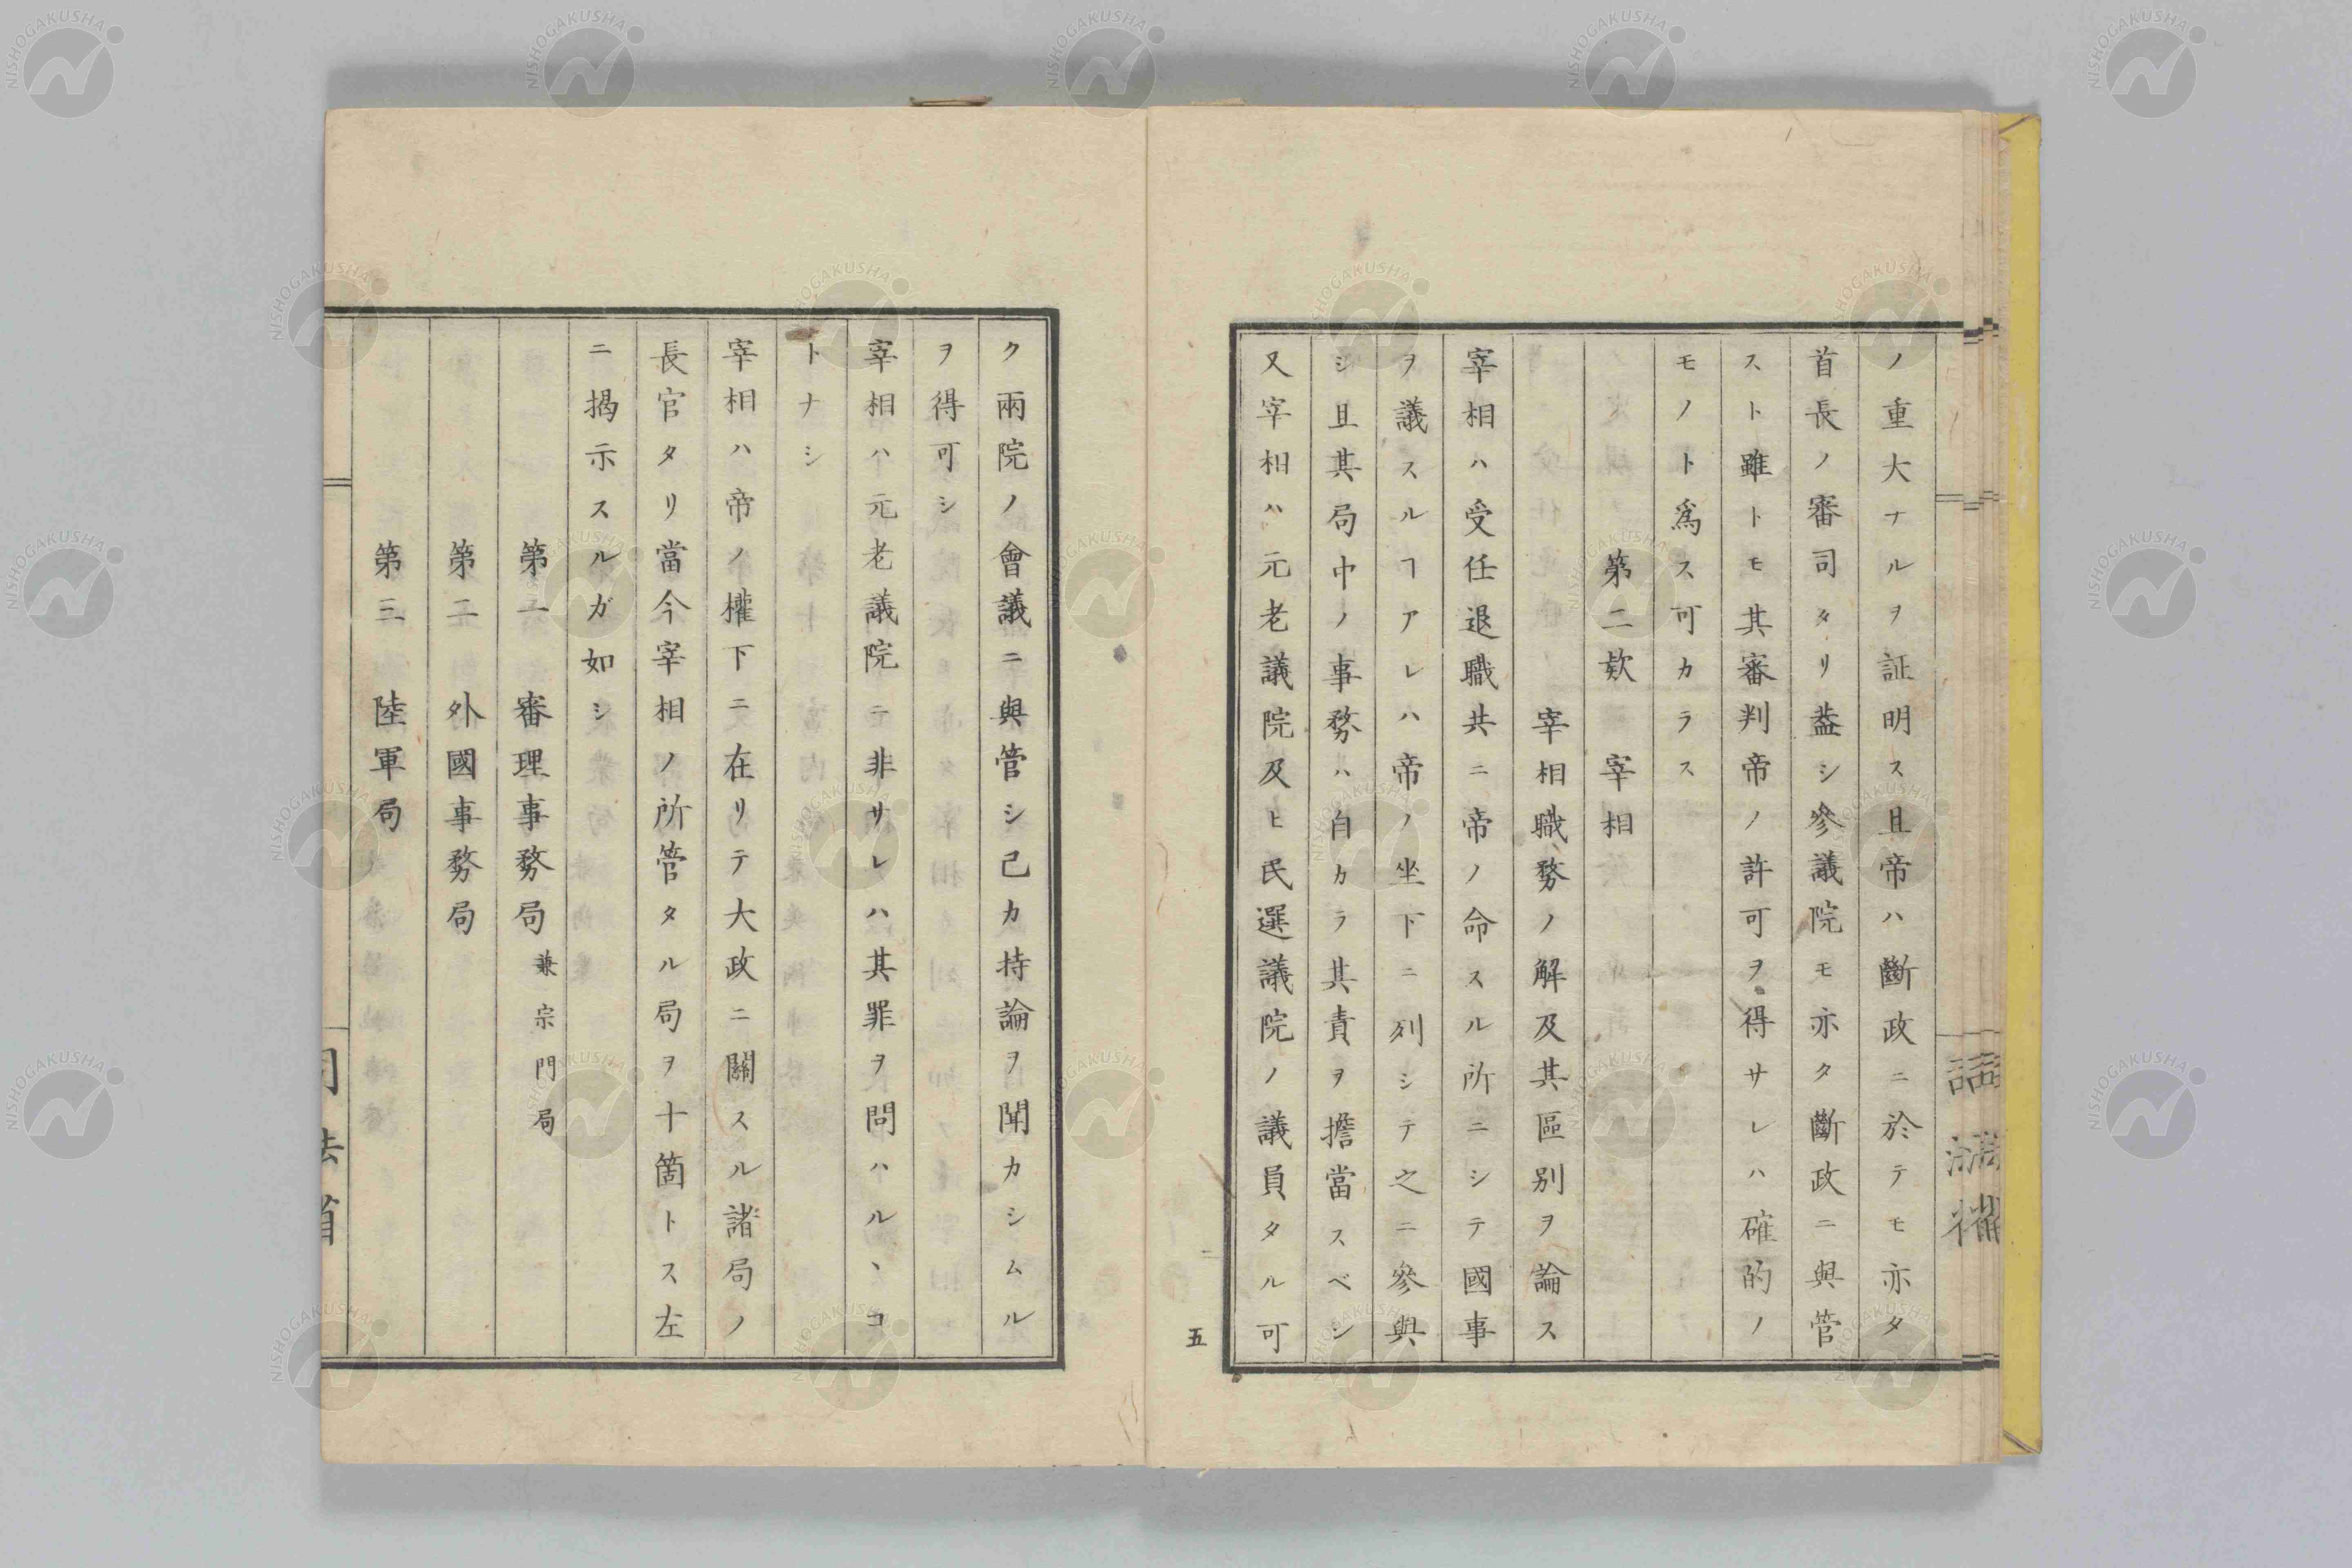 ノ重大ナルヲ証明ス且帝ハ斷政ニ於テモ亦タ
首長ノ審司タリ葢シ參議院モ亦タ斷政ニ與管
スト雖トモ其審判帝ノ許可ヲ得サレハ確的ノ
モノト爲ス可カラス
第二欵 宰相
宰相職務ノ解及其區別ヲ論ス
宰相ハ受任退職共ニ帝ノ命スル所ニシテ國事
ヲ議スルヿアレハ帝ノ坐下ニ列シテ之ニ參與
シ且其局中ノ事務ハ自カラ其責ヲ擔當スベシ
又宰相ハ元老議院及ヒ民選議院ノ議員タル可
五
ク兩院ノ會議ニ與管シ己カ持論ヲ聞カシムル
ヲ得可シ
宰相ハ元老議院ニ非サレハ其罪ヲ問ハルヽコ
トナシ
宰相ハ帝ノ權下ニ在リテ大政ニ關スル諸局ノ
長官タリ當今宰相ノ所管タル局ヲ十箇トス左
ニ揭示スルガ如シ
第一 審理事務局 兼宗門局
第二 外國事務局
第三 陸軍局
NISHOGAKUSHA